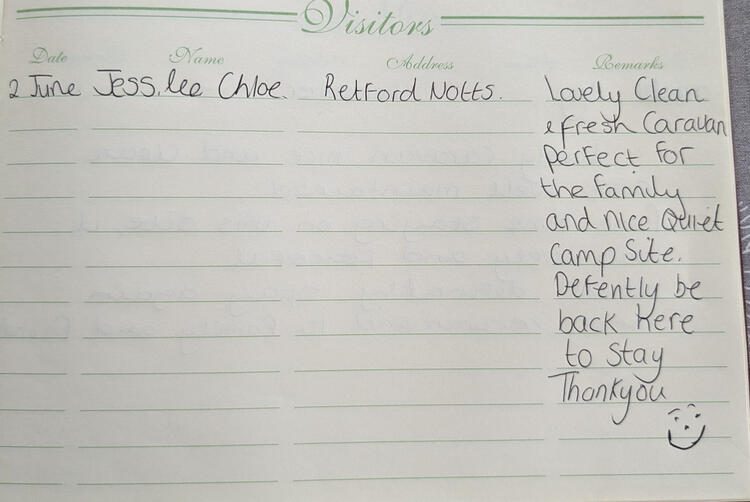 Visitors
Date Name Address Remarks
2 June Jess, lee Chloe. Retford Notts. Lovely Clean
& fresh Caravan
perfect for
the family
and nice Quiet
Camp Site.
Defently be
back here
to stay
Thankyou